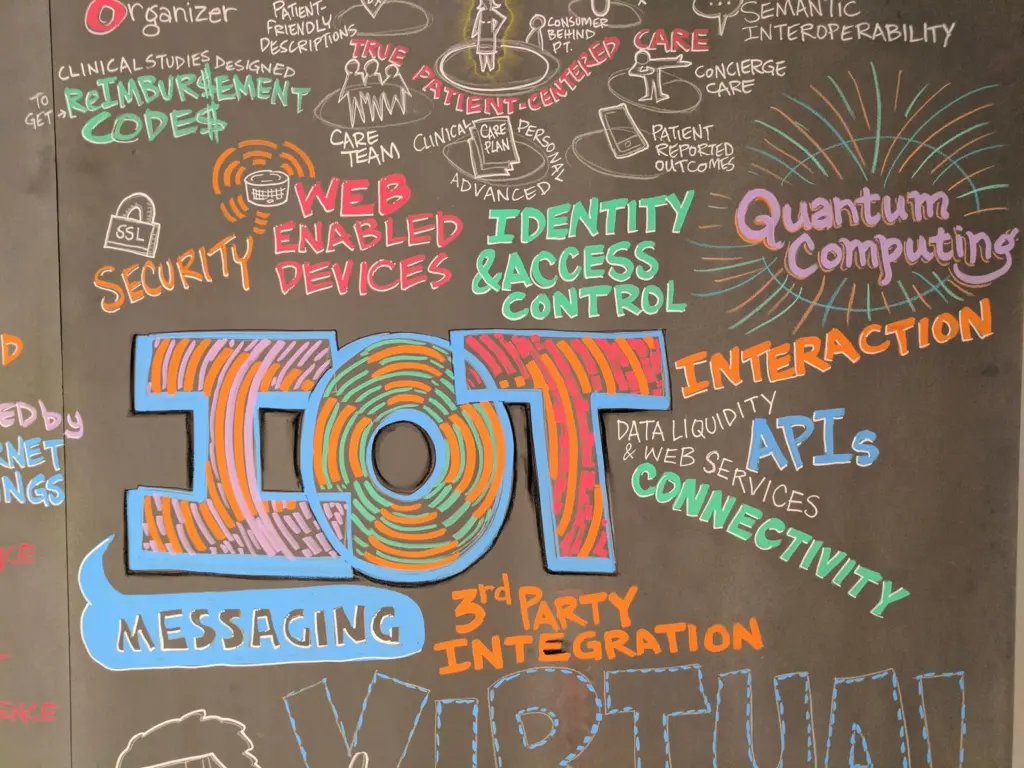 Organizer
PATIENT-
FRIENDLY
DESCRIPTIONS
CONSUMER
BEHIND
PT.
SEMANTIC
INTEROPERABILITY
TRUE PATIENT-CENTERED CARE
CLINICAL STUDIES DESIGNED
TO
GET →
ReIMBUR$EMENT
CODE$
CARE
TEAM
CLINICAL
CARE
PLAN
PERSONAL
ADVANCED
CONCIERGE
CARE
PATIENT
REPORTED
OUTCOMES
SSL
SECURITY
WEB
ENABLED
DEVICES
IDENTITY
&ACCESS
CONTROL
Quantum
Computing
IOT
INTERACTION
DATA LIQUIDITY
& WEB SERVICES
APIs
CONNECTIVITY
MESSAGING
3rd PARTY
INTEGRATION
VIRTUAL
D
ED by
RNET
NGS